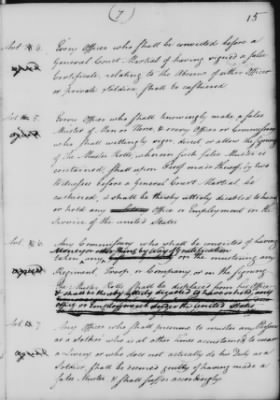 (7) 15
Art. 4. Every Officer who shall be convicted before a
General Court Martial of having signed a false
Certificate, relating to the absence of either Officer
or private Soldier shall be cashiered
Art. 5. Every Officer who shall knowingly make a false
Muster of Man or Horse, & every Officer or Commissary
who shall willingly sign, direct or allow the signing
of the Muster Rolls, wherein such false Muster is
contained, shall upon Proof made thereof, by two
Witnesses before a General Court Martial be
cashiered, & shall be thereby utterly disabled to have
or hold any Office or Employment in the
Service of the united States
Art. 6. Any Commissary who shall be convicted of having
taken any on the mustering any
Regiment, Troop, or Company, or on the signing
the Muster Rolls shall be displaced from his Office
& shall be thereby utterly disabled to have or hold any
office or Employment under the united States
Art. 7. Any Officer who shall presume to muster any Person
as a Soldier who is at other times accustomed to wear
a Livery or who does not actually do his Duty as a
Soldier, shall be deemed guilty of having made a
false Muster & shall suffer accordingly